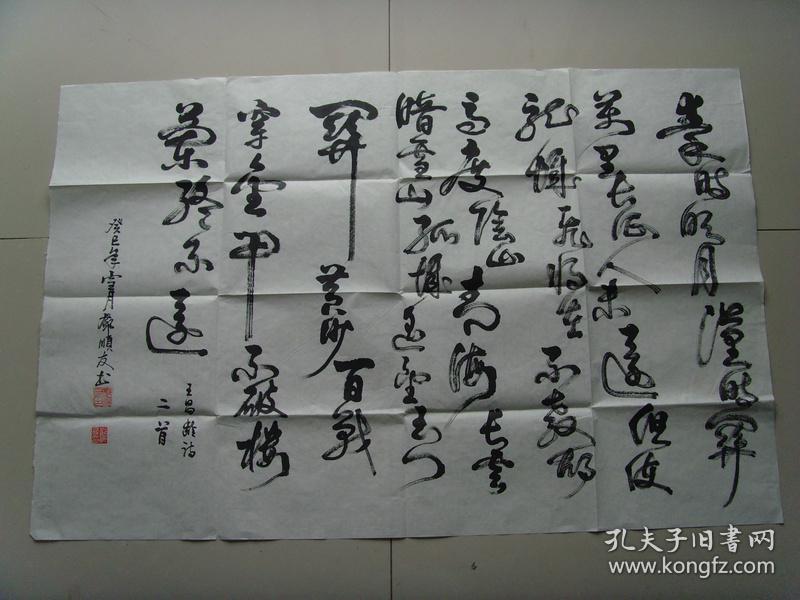 秦时明月汉时关
万里长征人未还但使
龙城飞将在不教胡
马度阴山青海长云
暗雪山孤城遥望玉门
关黄沙百战
穿金甲不破楼
兰终不还
王昌龄诗
二首
癸巳年
顺友书
孔夫子旧书网
www.kongfz.com